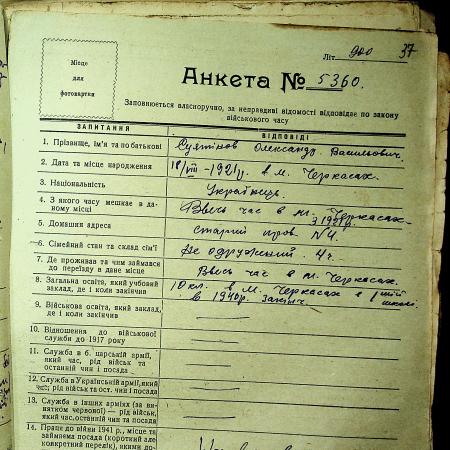 Літ. 900 37
Місце
для
фотокартки
Анкета № 5360.
Заповнюється власноручно, за неправдиві відомості відповідає по закону
військового часу
ЗАПИТАННЯ ВІДПОВІДІ
1. Прізвище, ім'я та по батькові Олександр Васильович.
2. Дата та місце народження 18/VIII-1921р. в м. Черкасах.
3. Національність Українець.
4. З якого часу мешкає в да-
ному місці Ввесь час в м. Черкасах
з 1921р.
5. Домашня адреса старий пров. №4.
6. Сімейний стан та склад сім'ї Не одружений. 4ч.
7. Де проживав та чим займався
до переїзду в дане місце Ввесь час в м. Черкасах.
8. Загальна освіта, який учбовий
заклад, де і коли закінчив 10 кл. в м. Черкасах в 1 шій
в 1940р. школі
9. Військова освіта, який заклад,
де і коли закінчив
10. Відношення до військової
служби до 1917 року
11. Служба в б. царській армії,
який час, рід військ та
останній чин і посада
12. Служба в Українській армії, який
час, рід військ та ост. чин і посада
13. Служба в інших арміях (за ви-
нятком червоної) — рід військ,
який час, останній чин та посада
14. Праця до війни 1941 р., місце та
займаєма посада (короткий але
конкретний перелік), якими